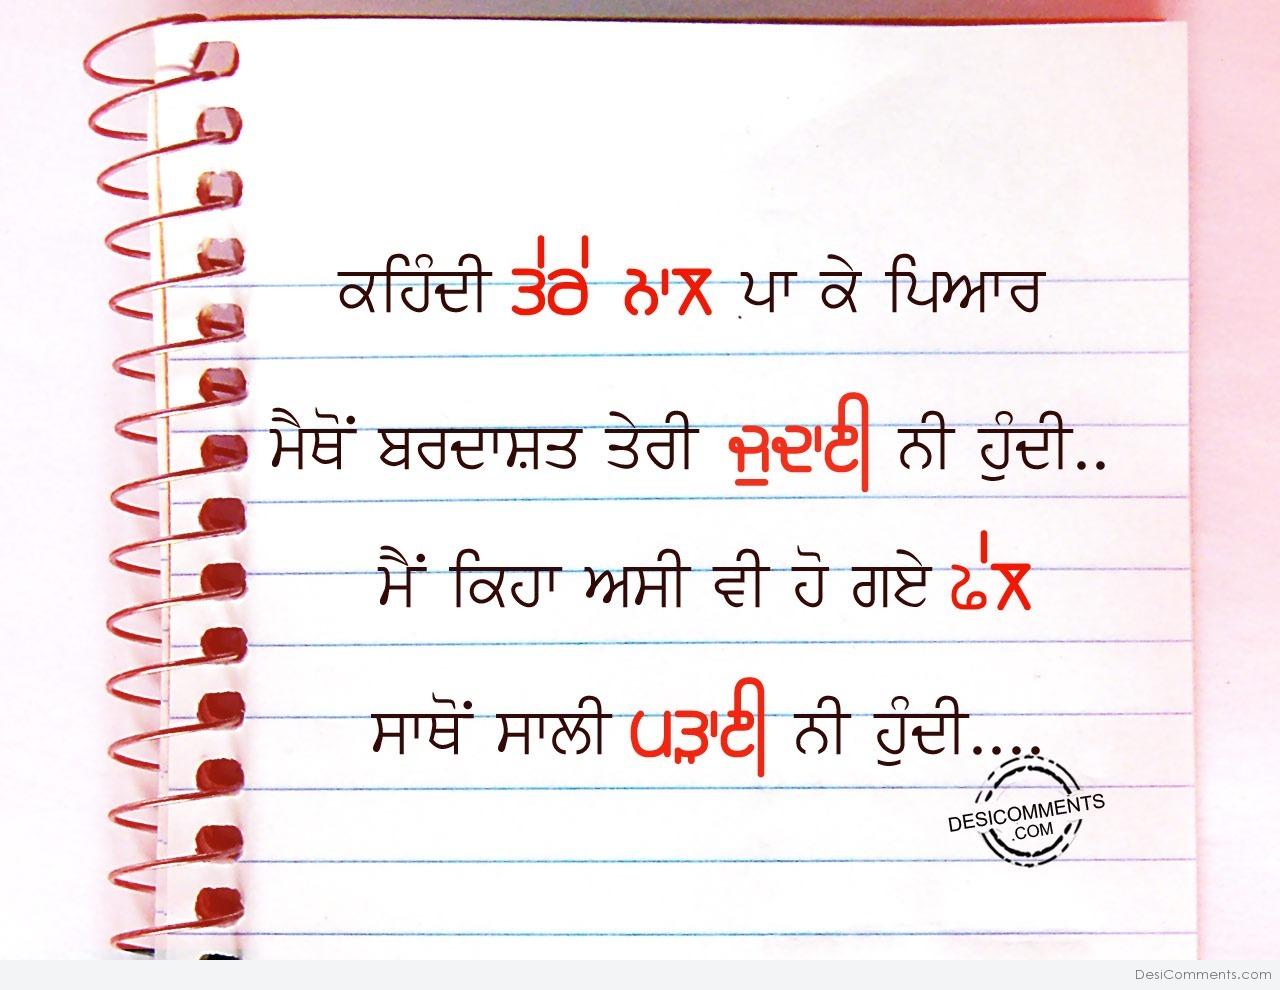 ਕਹਿੰਦੀ ਤੇਰੇ ਨਾਲ ਪਾ ਕੇ ਪਿਆਰ
ਮੈਥੋਂ ਬਰਦਾਸ਼ਤ ਤੇਰੀ ਜੁਦਾਈ ਨੀ ਹੁੰਦੀ..
ਮੈਂ ਕਿਹਾ ਅਸੀ ਵੀ ਹੋ ਗਏ ਫੇਲ
ਸਾਥੋਂ ਸਾਲੀ ਪੜਾਈ ਨੀ ਹੁੰਦੀ....
DESICOMMENTS
.COM
DesiComments.com